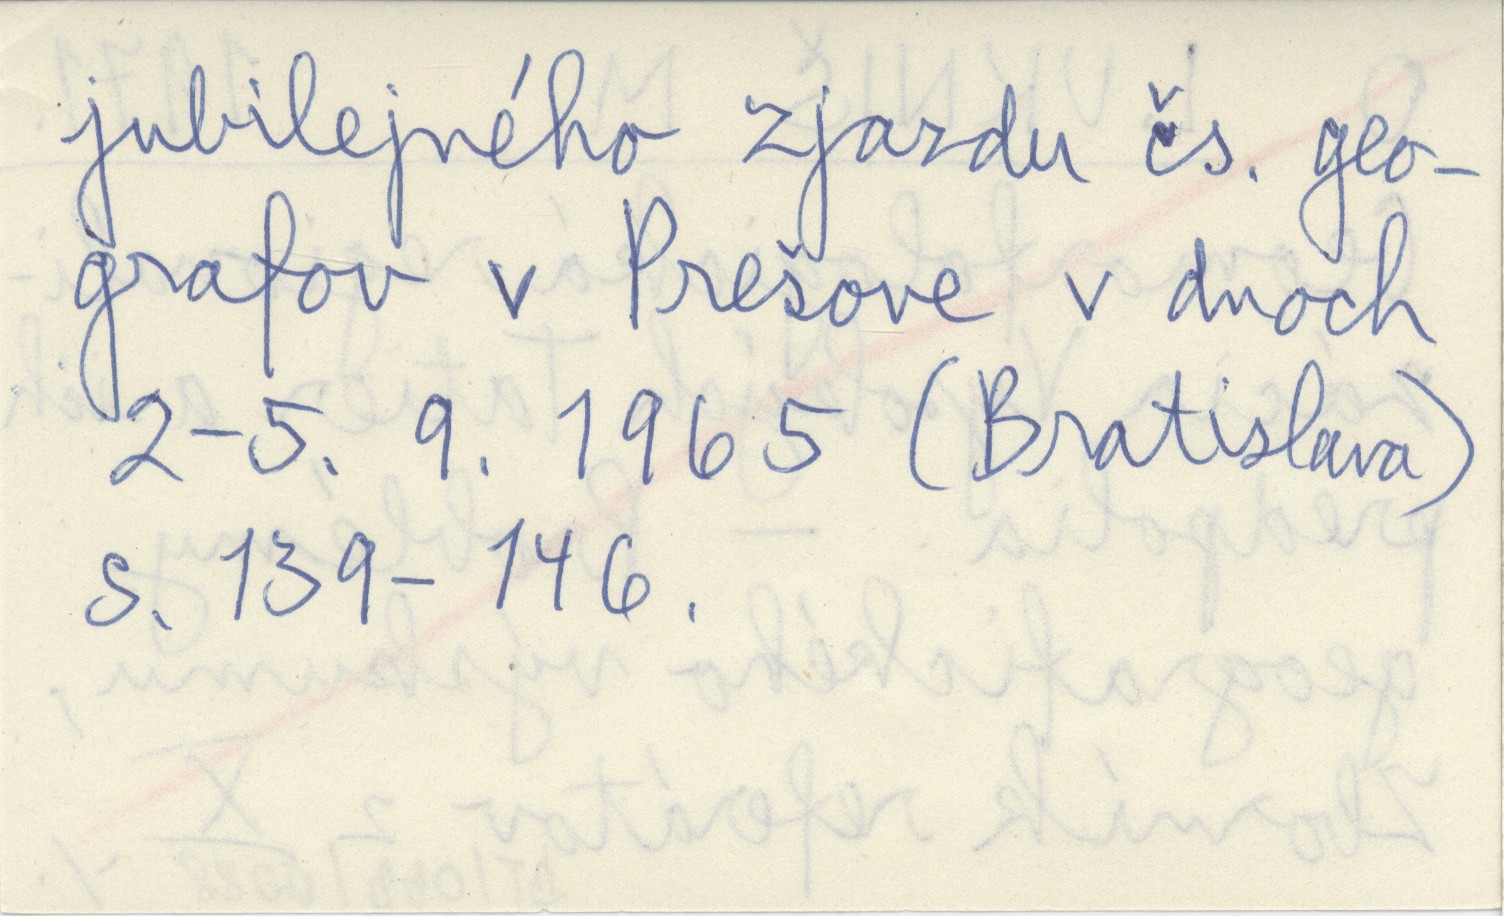 jubilejného zjazdu čs. geo-
grafov v Prešove v dnoch
2-5. 9. 1965 (Bratislava)
s. 139-146.